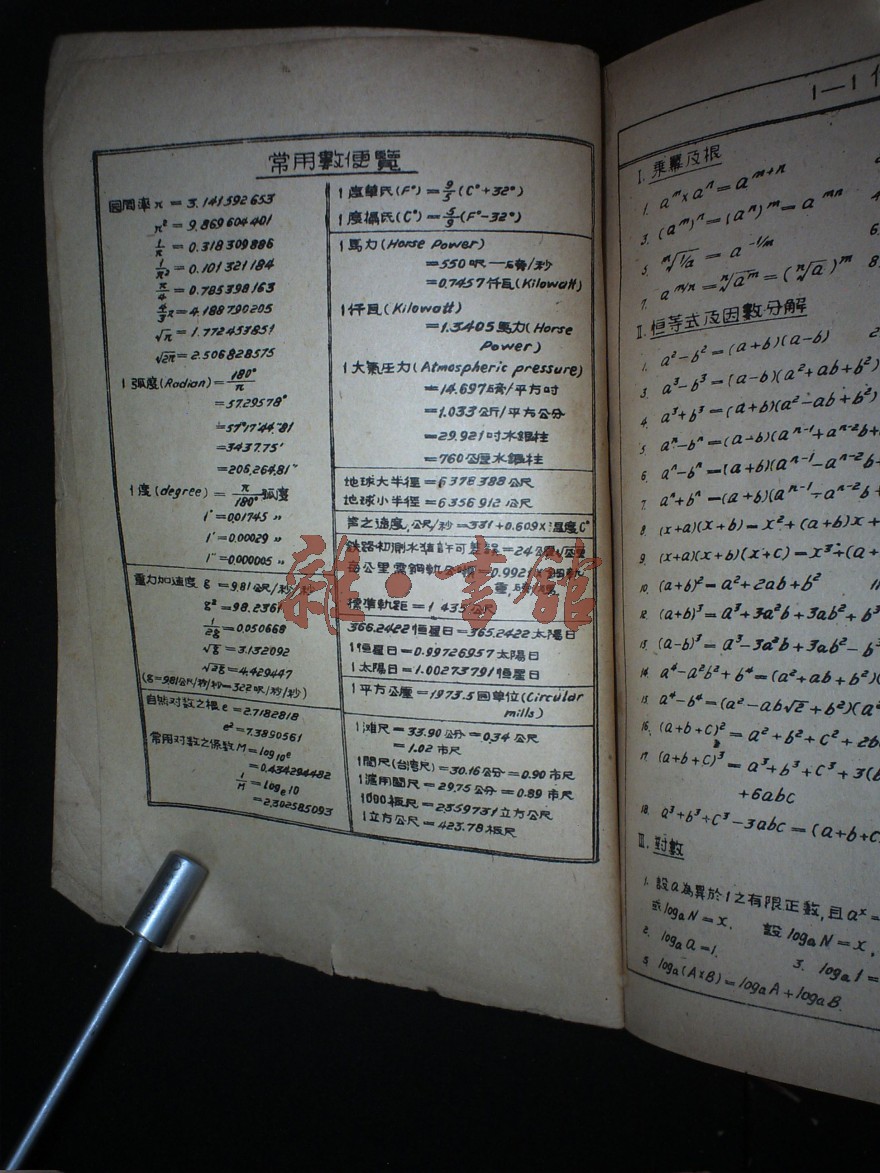 常用數便覽
圓周率 π = 3.141592653
π² = 9.869604401
1/π = 0.318309886
1/π² = 0.101321184
π/4 = 0.785398163
4/3π = 4.188790205
√π = 1.772453851
√2π = 2.506828575
1 弧度(Radian) = 180°/π
= 57.29578°
= 57°17′44.″81
= 3437.75′
= 206,264.81″
1 度(degree) = π/180° 弧度
1° = 0.01745 〃
1′ = 0.00029 〃
1″ = 0.000005 〃
重力加速度 g = 9.81公尺/秒/秒
g² = 98.2361
1/2g = 0.050668
√g = 3.132092
√2g = 4.429447
(g = 9.81公尺/秒/秒 = 32.2呎/秒/秒)
自然对数之根 e = 2.7182818
e² = 7.3890561
常用对数之係數 M = log₁₀e
= 0.434294482
1/M = logₑ10
= 2.302585093
1 度華氏(F°) = 9/5(C°+32°)
1 度攝氏(C°) = 5/9(F°-32°)
1 馬力(Horse Power)
= 550呎—磅/秒
= 0.7457仟瓦(Kilowatt)
1 仟瓦(Kilowatt)
= 1.3405馬力(Horse
Power)
1 大氣压力(Atmospheric pressure)
= 14.697磅/平方吋
= 1.033公斤/平方公分
= 29.921吋水銀柱
= 760公厘水銀柱
地球大半徑 = 6378388公尺
地球小半徑 = 6356912公尺
声之速度,公尺/秒 = 331+0.609×温度C°
鉄路初測水準許可差誤 = 24公厘√公里
每公里需鋼軌公噸 = 0.9921×鋼軌
重,磅/碼
標準軌距 = 1.435公尺
366.2422恒星日 = 365.2422太陽日
1 恒星日 = 0.99726957太陽日
1 太陽日 = 1.00273791恒星日
1 平方公厘 = 1973.5圓單位(Circular
mills)
1 滩尺 = 33.90公分 = 0.34公尺
= 1.02市尺
1 間尺(台湾尺) = 30.16公分 = 0.90市尺
1 滬用間尺 = 29.75公分 = 0.89市尺
1000板尺 = 2.359731立方公尺
1 立方公尺 = 423.78板尺
1—1
I. 乘冪及根
1. aᵐ×aⁿ = aᵐ⁺ⁿ
3. (aᵐ)ⁿ = (aⁿ)ᵐ = aᵐⁿ
5. ᵐ√1/a = a^(-1/m)
7. a^(m/n) = ⁿ√aᵐ = (ⁿ√a)ᵐ
II. 恒等式及因數分解
1. a²-b² = (a+b)(a-b)
3. a³-b³ = (a-b)(a²+ab+b²)
4. a³+b³ = (a+b)(a²-ab+b²)
5. aⁿ-bⁿ = (a-b)(aⁿ⁻¹+aⁿ⁻²b+
6. aⁿ-bⁿ = (a+b)(aⁿ⁻¹-aⁿ⁻²b
7. aⁿ+bⁿ = (a+b)(aⁿ⁻¹-aⁿ⁻²b
8. (x+a)(x+b) = x²+(a+b)x+
9. (x+a)(x+b)(x+c) = x³+(a+
10. (a+b)² = a²+2ab+b² 11
12. (a+b)³ = a³+3a²b+3ab²+b³
13. (a-b)³ = a³-3a²b+3ab²-b³
14. a⁴-a²b²+b⁴ = (a²+ab+b²)(
15. a⁴-b⁴ = (a²-ab√2+b²)(a²
16. (a+b+c)² = a²+b²+c²+2b
17. (a+b+c)³ = a³+b³+c³+3(b
+6abc
18. a³+b³+c³-3abc = (a+b+c
III. 對數
1. 設a為異於1之有限正數,且aˣ =
或logₐN = x. 設logₐN = x,
2. logₐa = 1. 3. logₐ1 =
5. logₐ(A×B) = logₐA+logₐB.
雜·書館